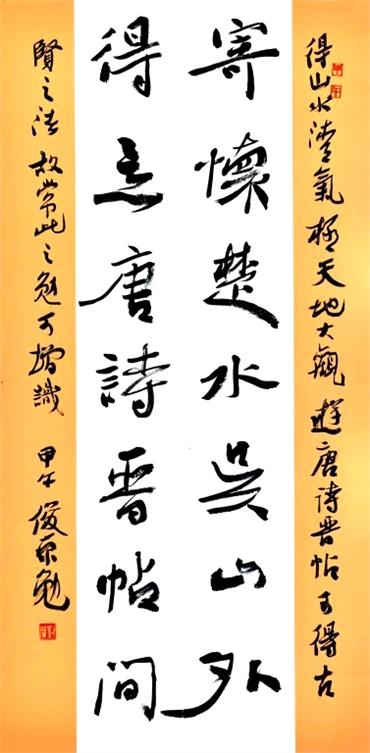 得山水清氣極天地大觀遊唐詩晉帖可得古
寄懷楚水吳山外
得意唐詩晉帖間
賢之法故常此之勉可增識 甲午俊勉